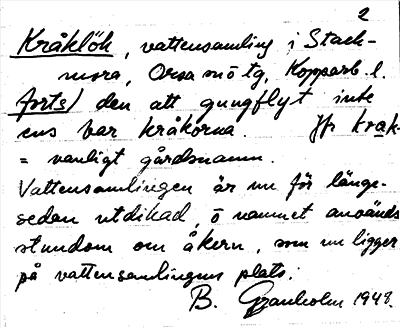 2
Kråklök, vattensamling i Stack-
mora, Orsa sn ö tg, Kopparb. l.
forts) den att gungflyt inte
ens bar kråkorna. Jfr krak-
= vanligt gårdsnamn.
Vattensamlingen är nu för länge-
sedan utdikad, o namnet används
stundom om åkern, som nu ligger
på vattensamlingens plats.
B. Granholm 1948.